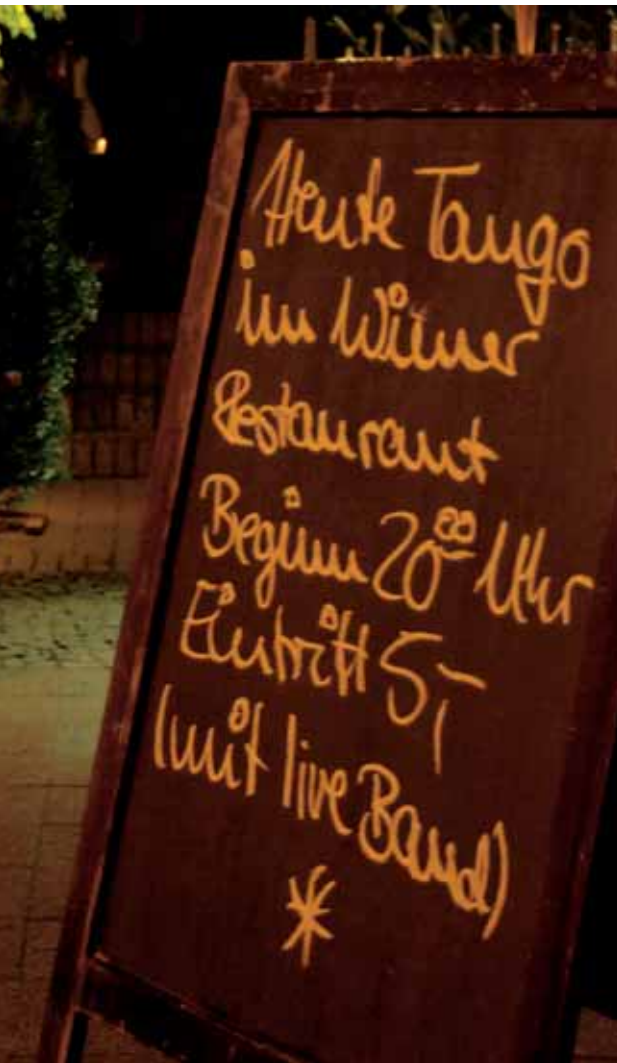 Heute Tango
im Wiener
Restaurant
Beginn 20⁰⁰ Uhr
Eintritt 5,-
(mit live Band)
*